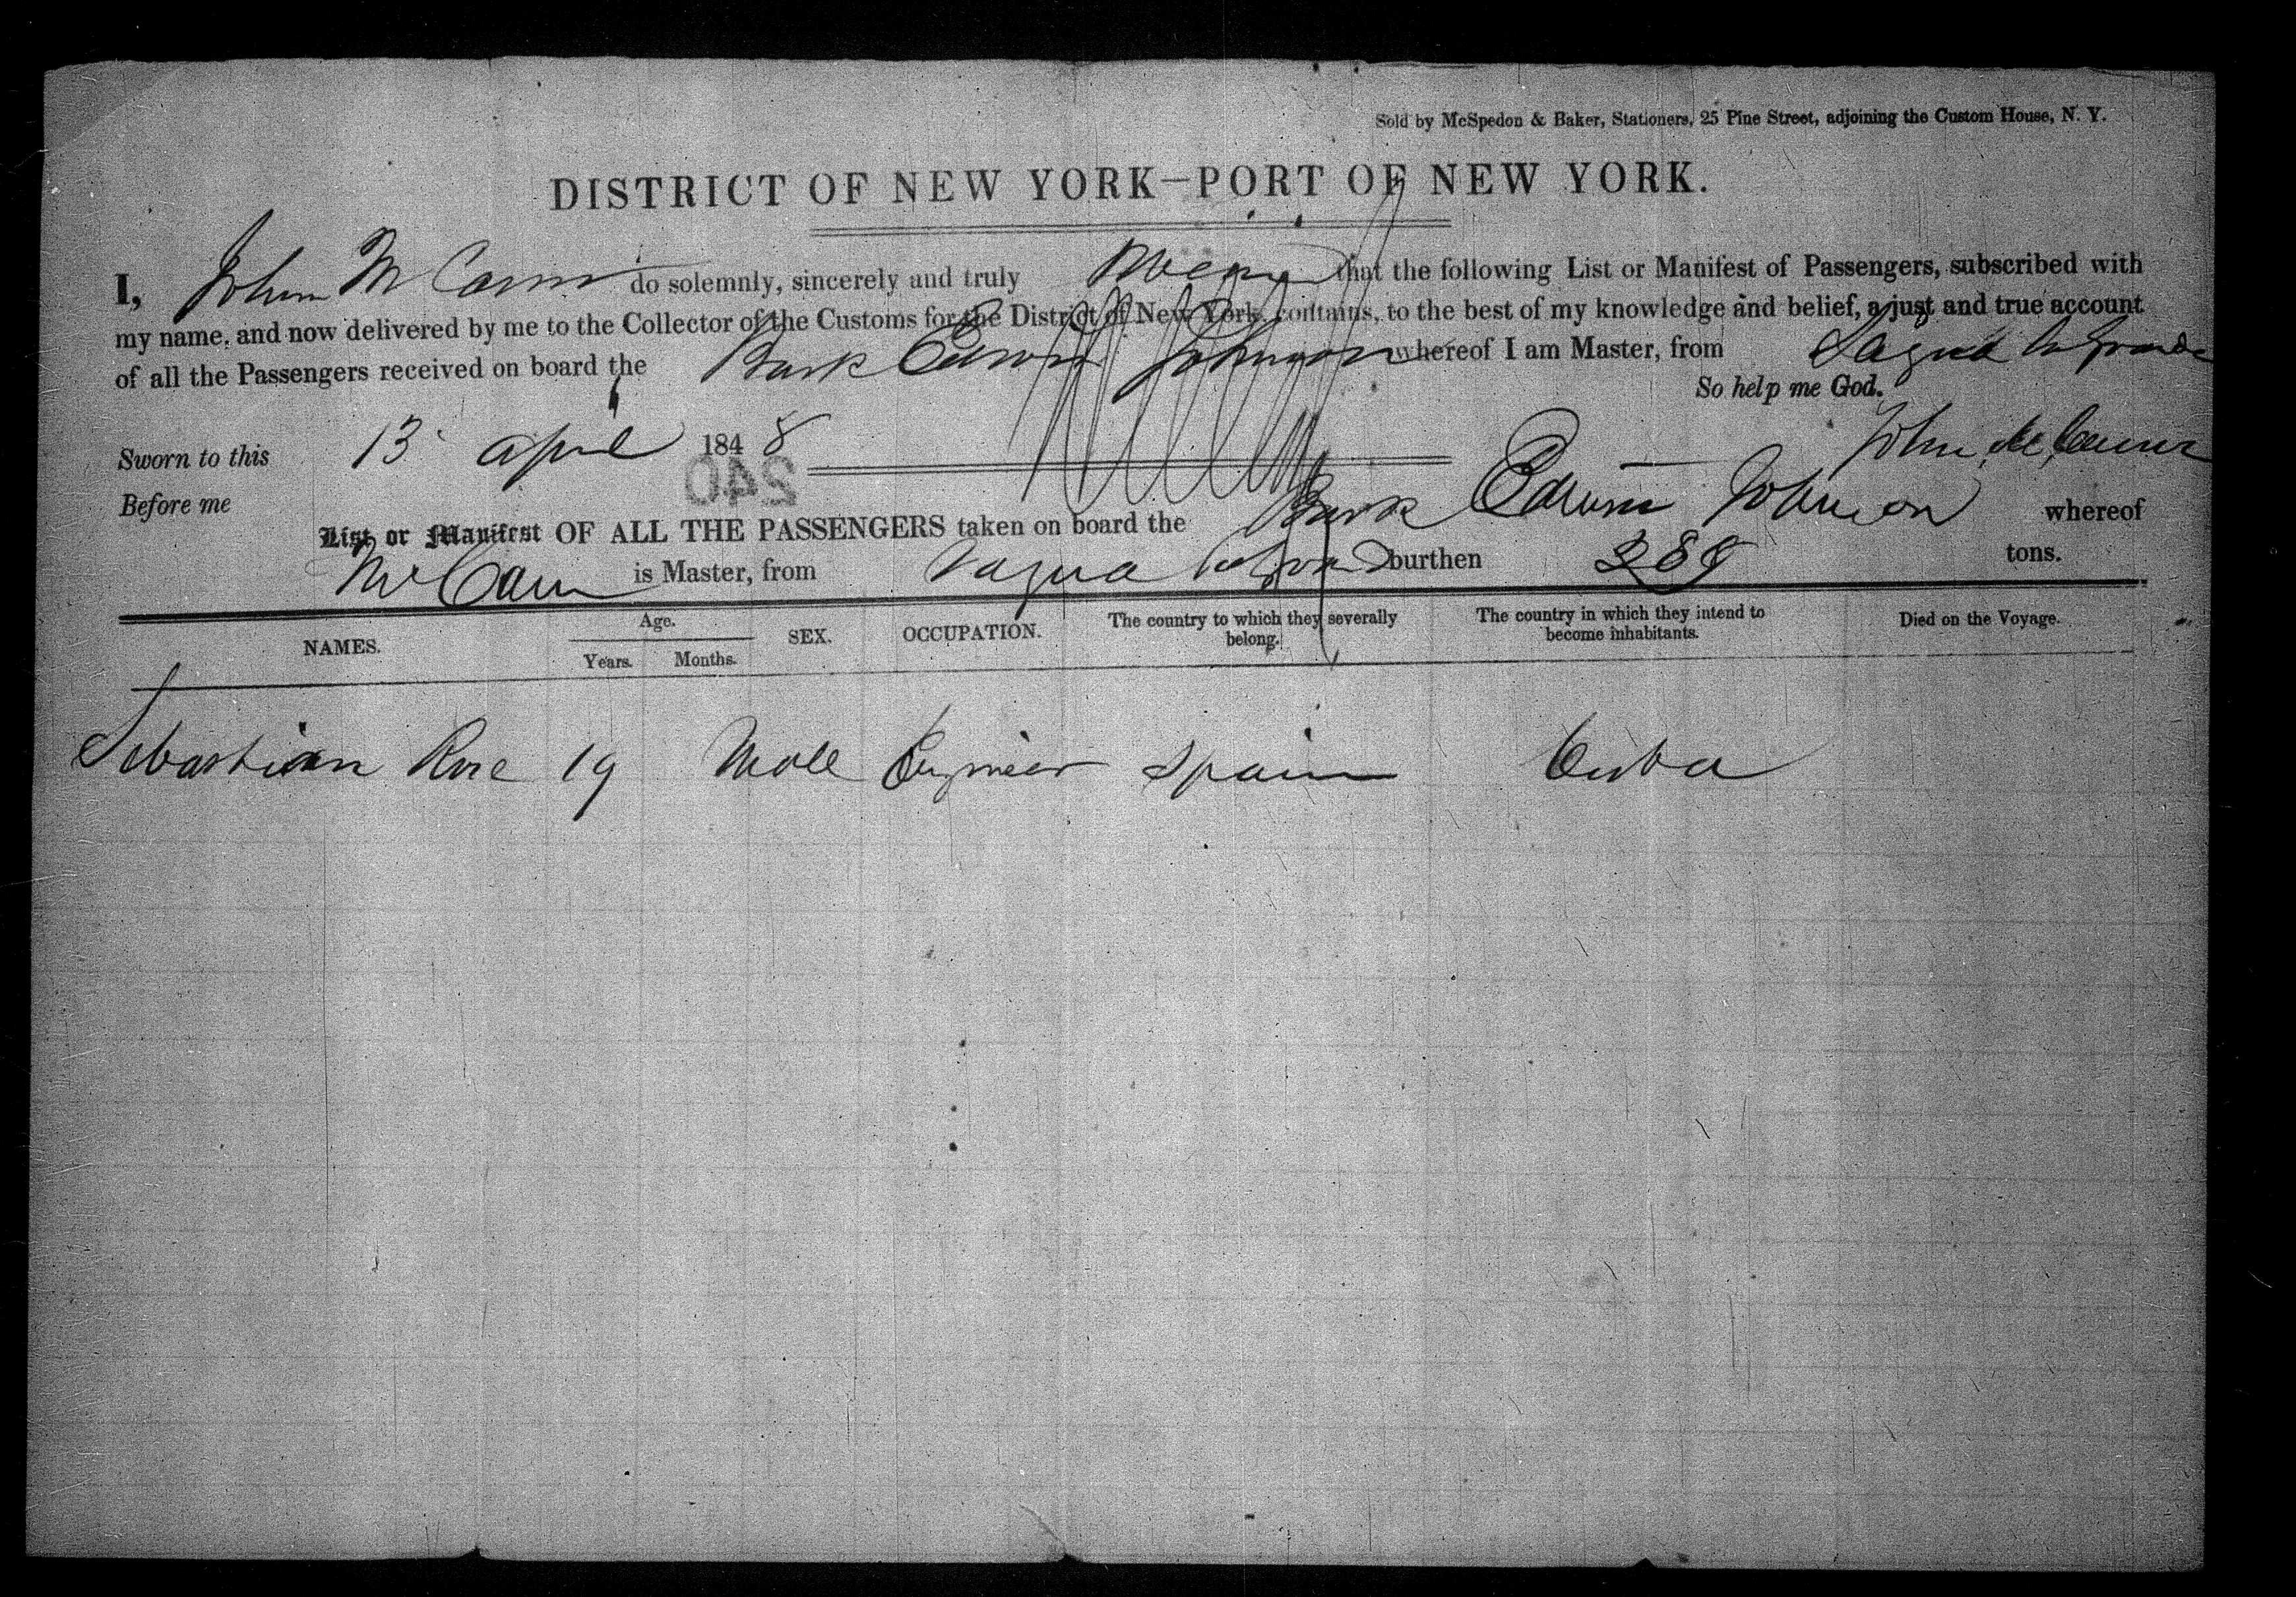 Sold by McSpedon & Baker, Stationers, 25 Pine Street, adjoining the Custom House, N. Y.
DISTRICT OF NEW YORK—PORT OF NEW YORK.
I, John McCann do solemnly, sincerely and truly that the following List or Manifest of Passengers, subscribed with
my name, and now delivered by me to the Collector of the Customs for the District of New York, contains, to the best of my knowledge and belief, a just and true account
of all the Passengers received on board the Bark Edwin Johnson whereof I am Master, from Sagua la Grande
So help me God.
Sworn to this 13 April 1848 John
Before me
240
List or Manifest OF ALL THE PASSENGERS taken on board the Bark Edwin Johnson whereof
McCann is Master, from Sagua la Grand burthen 288 tons.
NAMES. Age. Years. Months. SEX. OCCUPATION. The country to which they severally belong. The country in which they intend to become inhabitants. Died on the Voyage.
Sebastian Rose 19 Male Engineer Spain Cuba